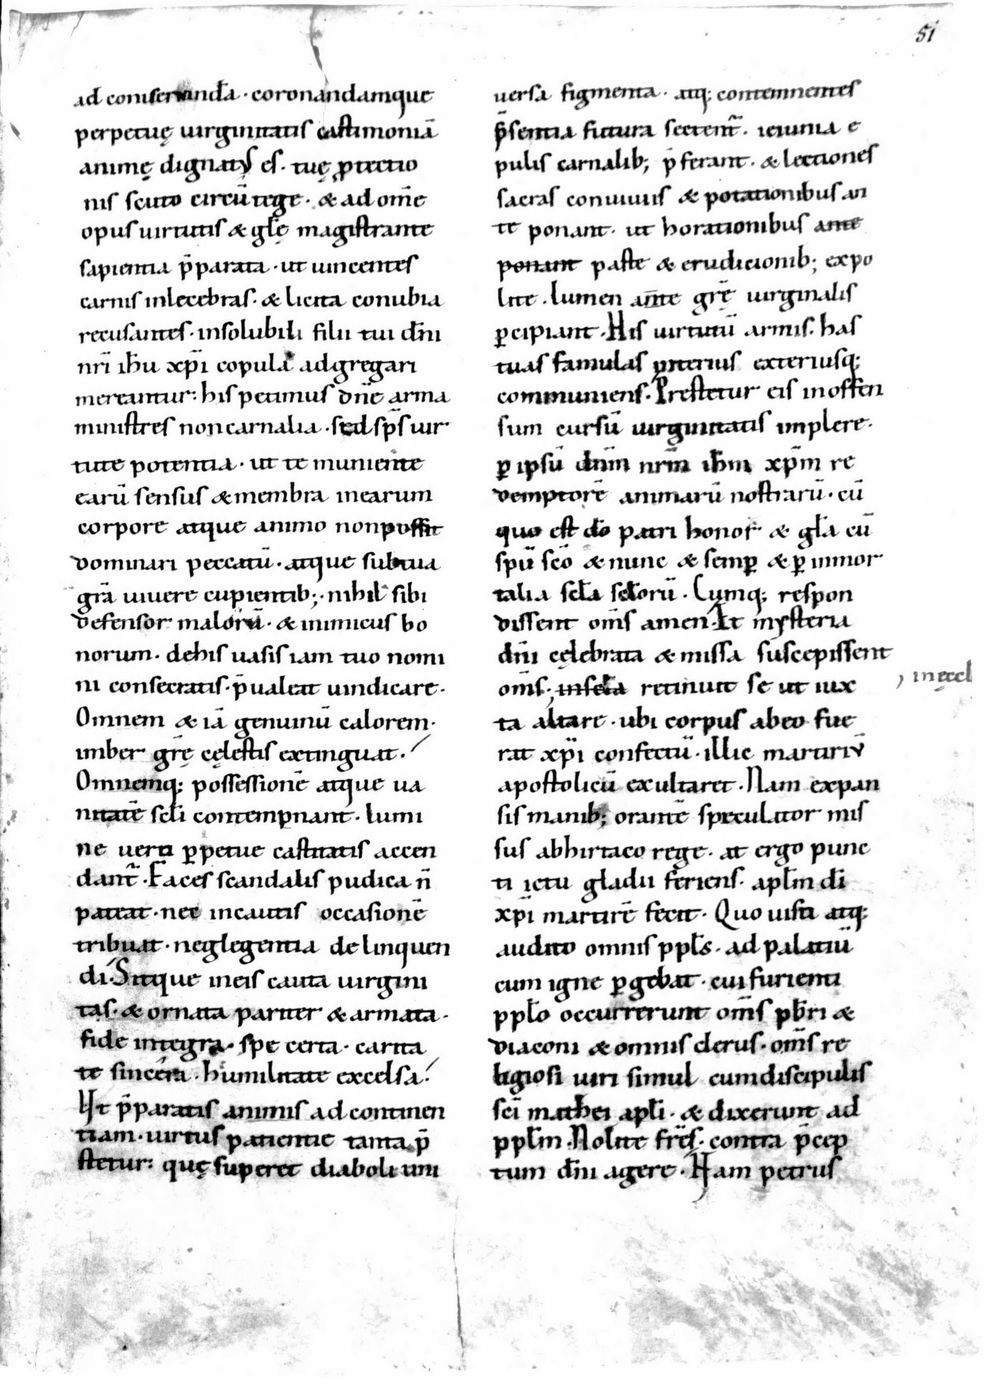 51
ad conseruanda · coronandamque
perpetuę uirginitatis castimoniā
animę dignatus es · tuę ꝓtectio
nis scuto circū tege · & ad om̄e
opus uirtutis & glę̄ magistrante
sapientia p̄parata · ut uincentes
carnis inlecebras · & licita conubia
recusantes · insolubili filii tui dn̄i
nr̄i ihū xp̄i copula adgregari
mereantur : his petimus dn̄e arma
ministres non carnalia · sed sp̄s uir
tute potentia · ut te muniente
earū sensus & membra inearum
corpore atque animo non possit
dominari peccatū · atque sub tua
grā uiuere cupientib; · nihil sibi
defensor malorū · & inimicus bo
norum · de his uasis iam tuo nomi
ni consecratis · p̄ualeat uindicare ·
Omnem & iā genuinū calorem ·
imber grę̄ cęlestis extinguat ·
Omnemq; possessionē atque ua
nitatē scl̄i contempnant · lumi
ne uera ꝑpetue castitatis accen
dant̄ · Faces scandalis pudica n̄
pateat · nec incautis occasionē
tribuat · neglegentia delinquen
di · Sitque ineis cauta uirgini
tas · & ornata pariter & armata ·
fide integra · spe certa · carita
te sincera · humilitate excelsa ·
Ut p̄paratis animis ad continen
tiam · uirtus patientie tanta p̄
stetur : quę superet diaboli uni
uersa figmenta · atq; contemnentes
p̄sentia futura sectent̄ · ieiunia e
pulis carnalib; p̄ferant · & lectiones
sacras conuiuiis & potationibus an
te ponant · ut horationibus ante
ponant paste & erudicionib; expo
lite · lumen ante grę̄ uirginalis
ꝑcipiant · His uirtutū armis · has
tuas famulas interius exteriusq;
communiens · Prestetur eis inoffen
sum cursū uirginitatis implere ·
ꝑ ipsū dn̄m nr̄m ihm̄ xp̄m re
demptorē animarū nostrarū · cū
quo est dō patri honor & glā cū
spū scō & nunc & semꝑ & ꝑ inmor
talia scl̄a scl̄orū · Cumq; respon
dissent om̄s amen · Et mysteria
dn̄i cęlebrata & missa suscepissent
om̄s, insela retinuit se ut iux
, in eccl
ta altare · ubi corpus abeo fue
rat xp̄i confectū · illic martiriū
apostolicū exultaret · Nam expan
sis manib; orantē speculator mis
sus abhirtaco rege · at ergo punc
ti ictu gladii feriens · apl̄m dī
xp̄i martirē fecit · Quo uisu atq;
audito omnis ppl̄s · ad palatiū
cum igne ꝑgebat · cui furienti
ppl̄o occurrerunt om̄s pb̄ri &
diaconi & omnis clerus · om̄s re
ligiosi uiri simul cum discipulis
scī mathei apl̄i · & dixerunt ad
ppl̄m · Nolite fr̄s · contra p̄cep
tum dn̄i agere · Nam petrus